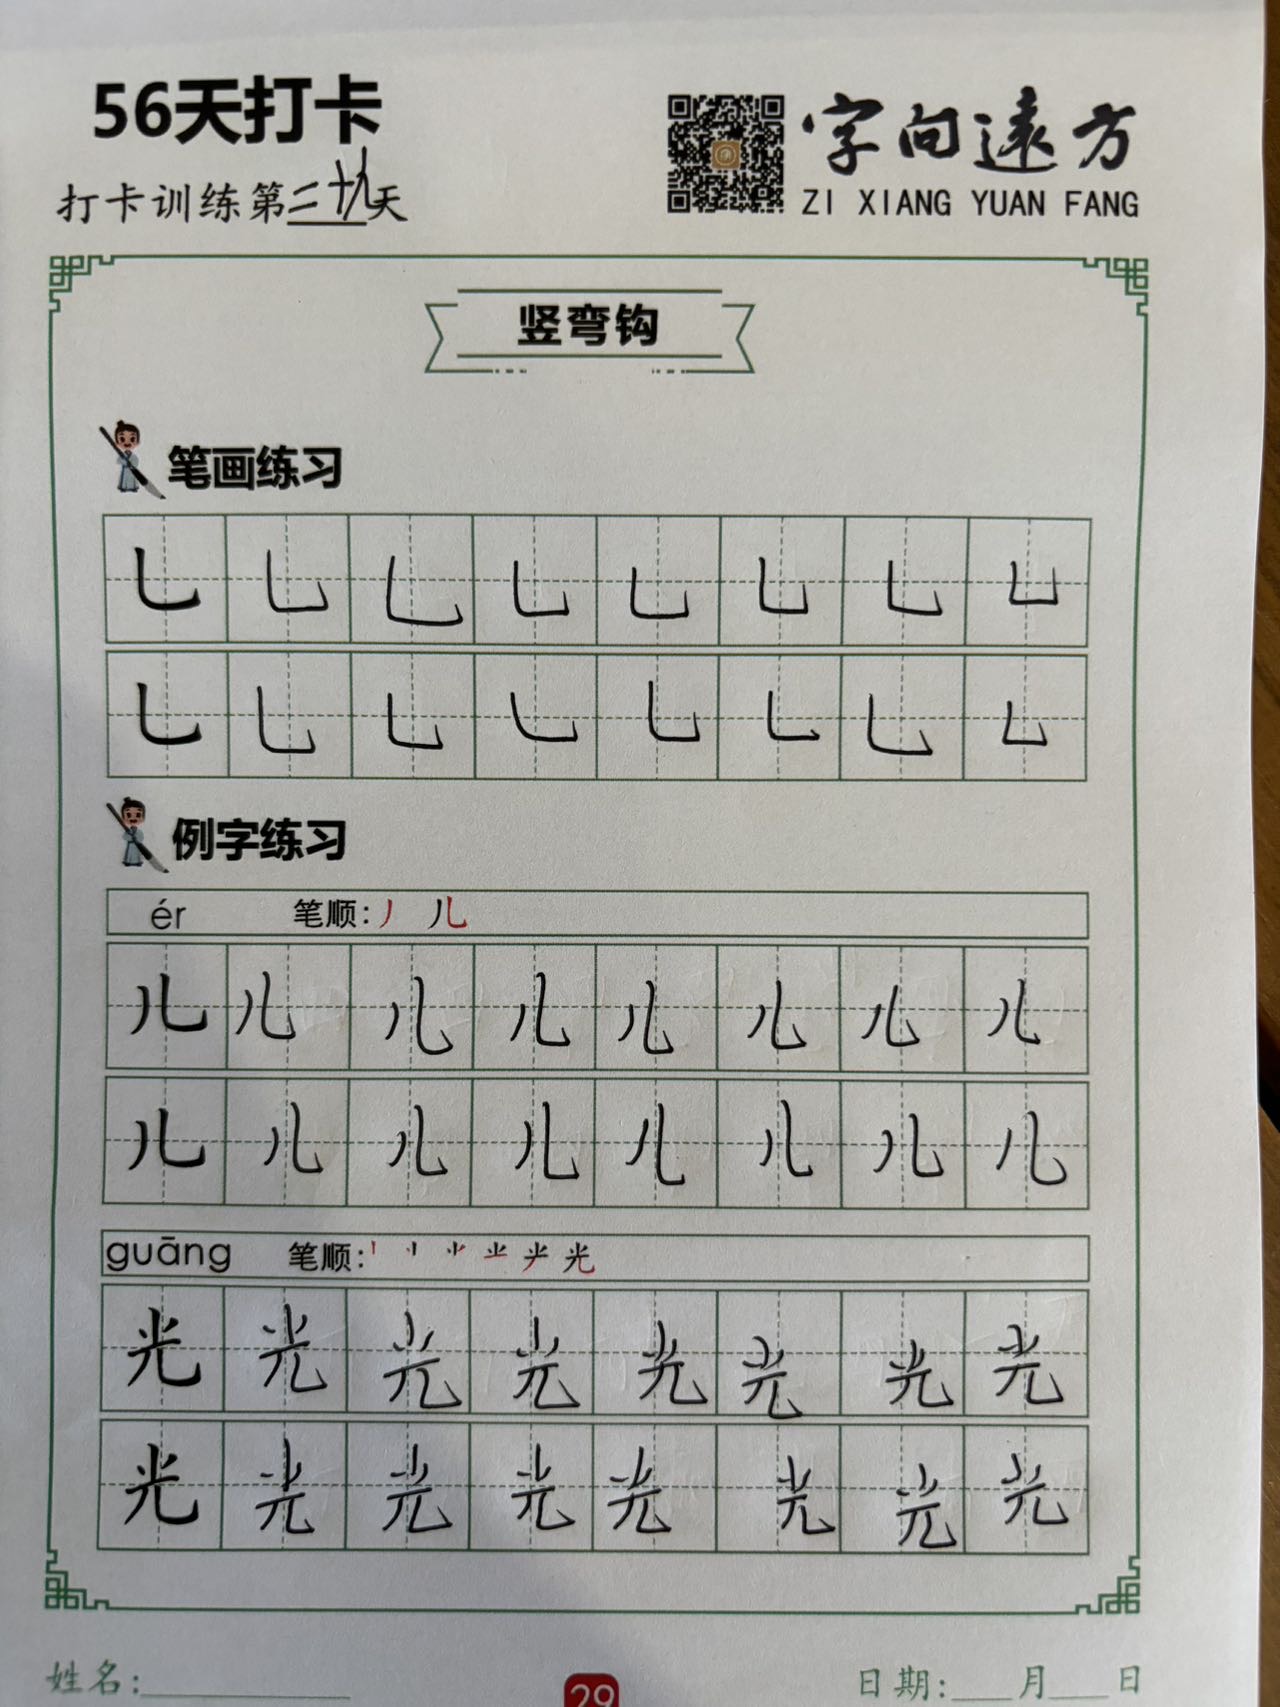 56天打卡
字向遠方
打卡训练第二十九天
ZI XIANG YUAN FANG
竖弯钩
笔画练习
乚 乚 乚 乚 乚 乚 乚 乚
乚 乚 乚 乚 乚 乚 乚 乚
例字练习
ér 笔顺:丿 儿
儿 儿 儿 儿 儿 儿 儿 儿
儿 儿 儿 儿 儿 儿 儿 儿
guāng 笔顺: 光
光 光 光 光 光 光 光 光
光 光 光 光 光 光 光 光
姓名:
29
日期: 月 日